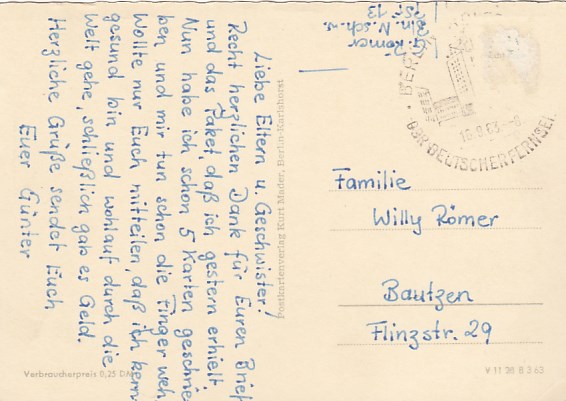 Liebe Eltern u. Geschwister!
Recht herzlichen Dank für Euren Brief
und das Paket, daß ich gestern erhielt.
Nun habe ich schon 5 Karten geschrie-
ben und mir tun schon die Finger weh
Wollte nur Euch mitteilen, daß ich kern
gesund bin und wohlauf durch die
Welt gehe, schließlich gab es Geld.
Herzliche Grüße sendet Euch
Euer Günter
Verbraucherpreis 0,25 DM
Postkartenverlag Kurt Mader, Berlin-Karlshorst
Römer
Bln. N.sch.w.
Str. 13
BER
16.9.63
DEUTSCHER FERNSE
Familie
Willy Römer
Bautzen
Flinzstr. 29
V 11 28 B 3 63